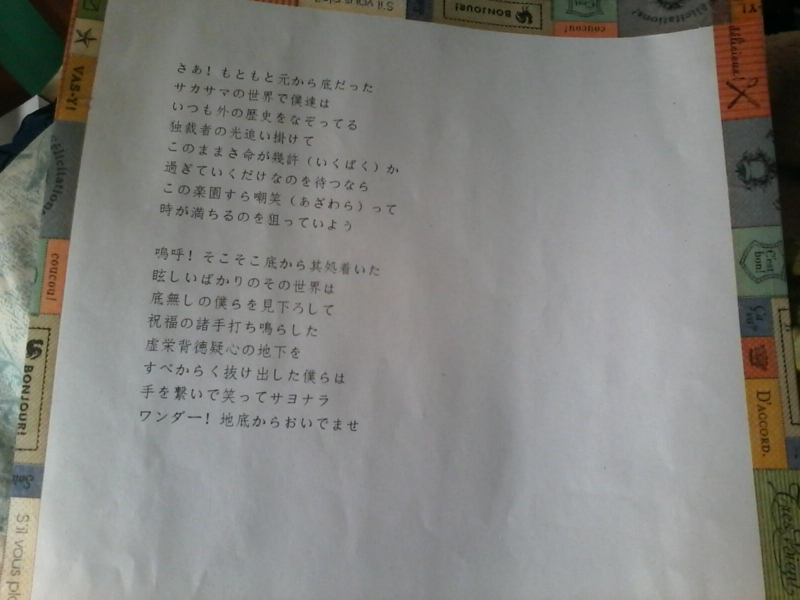 さあ！もともと元から底だった
サカサマの世界で僕達は
いつも外の歴史をなぞってる
独裁者の光追い掛けて
このままさ命が幾許（いくばく）か
過ぎていくだけなのを待つなら
この楽園すら嘲笑（あざわら）って
時が満ちるのを狙っていよう
嗚呼！そこそこ底から其処着いた
眩しいばかりのその世界は
底無しの僕らを見下ろして
祝福の諸手打ち鳴らした
虚栄背徳疑心の地下を
すべからく抜け出した僕らは
手を繋いで笑ってサヨナラ
ワンダー！地底からおいでませ
S'il vous plaî
BONJOUR!
coucou!
élicitations!
délicieux!
VAS-Y!
élicitation
coucou!
C'est bon!
Ça va?
BONJOUR!
D'ACCORD.
S'il vous pla